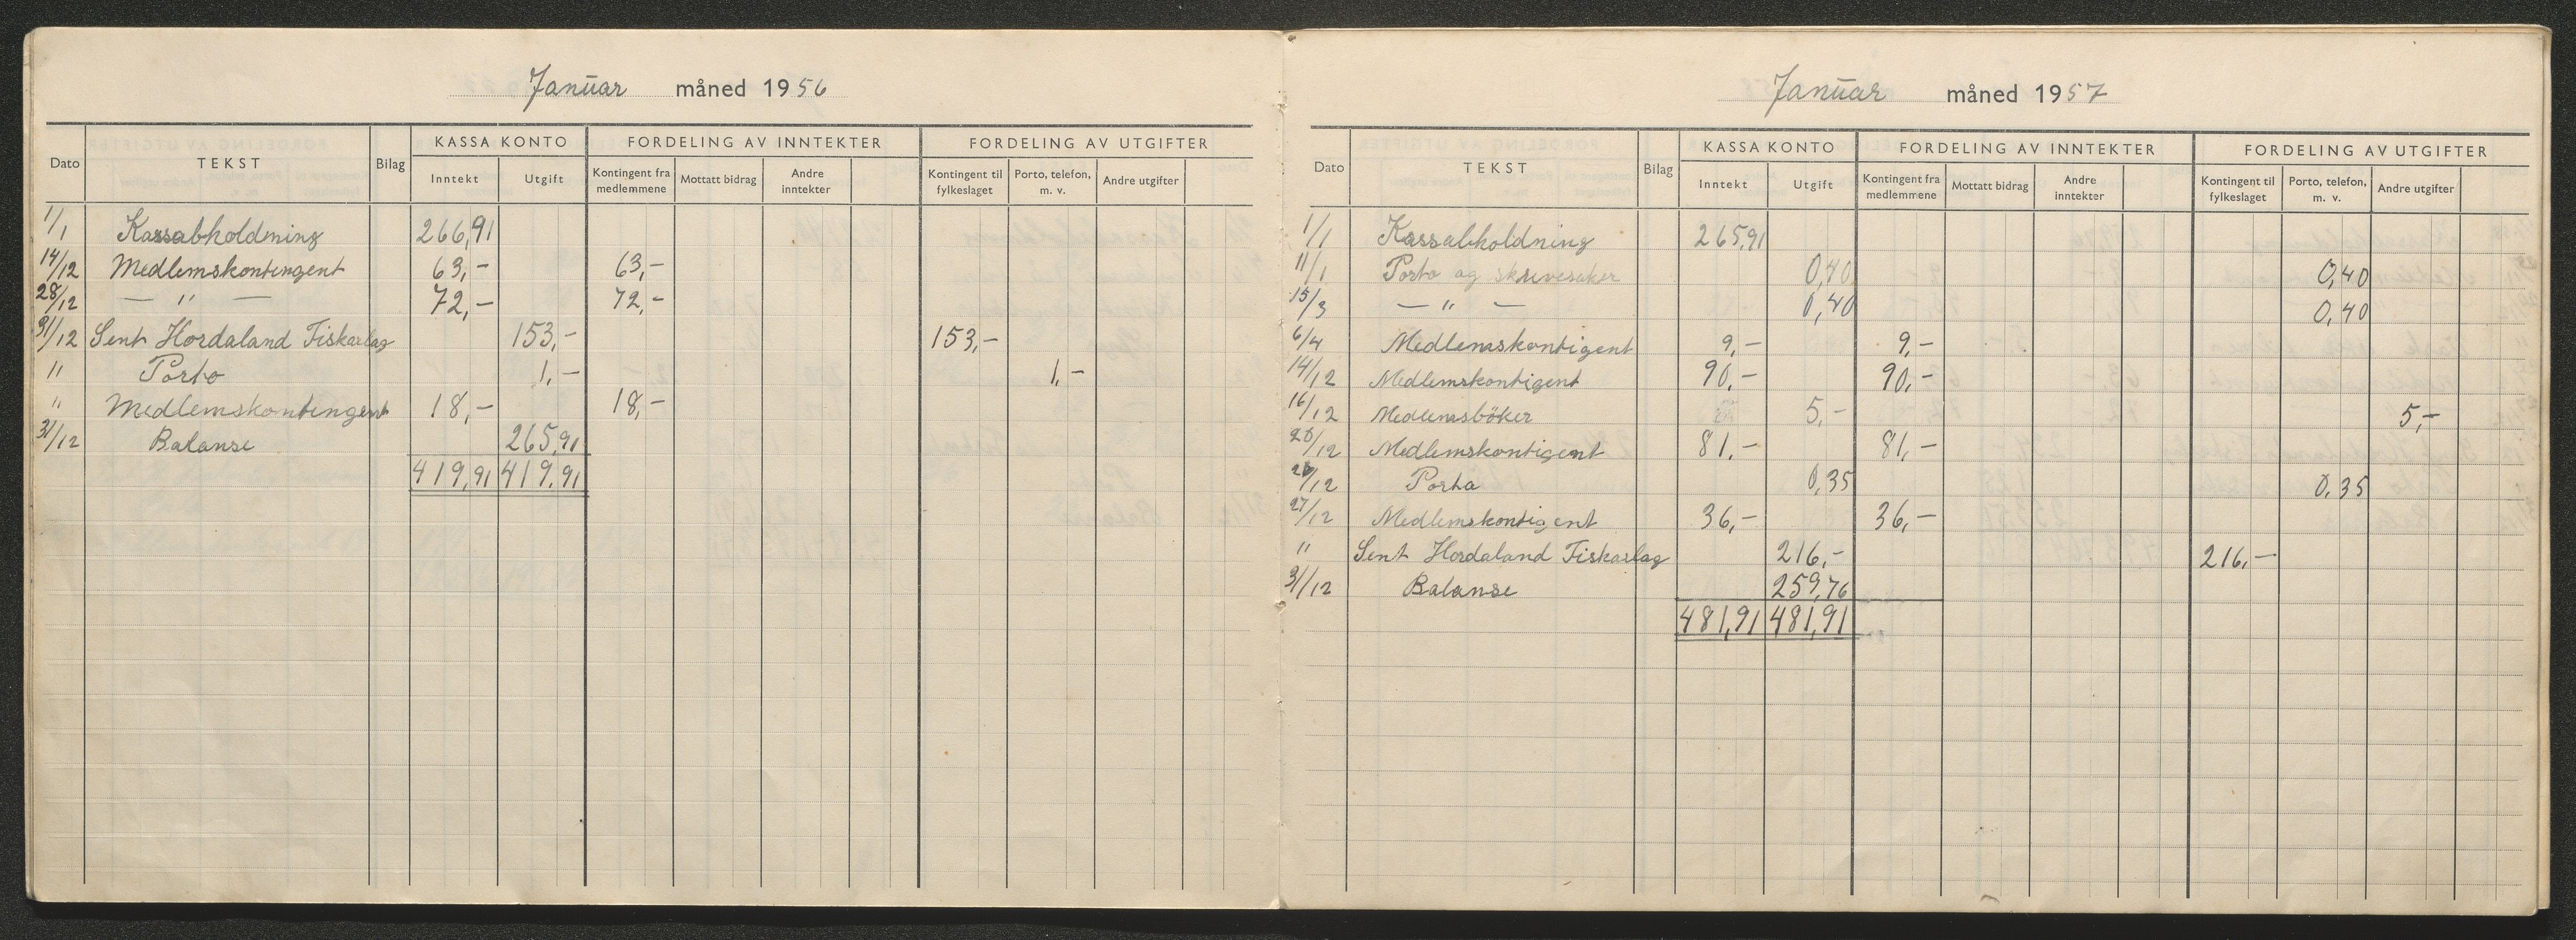 Januar måned 1956
KASSA KONTO FORDELING AV INNTEKTER FORDELING AV UTGIFTER
Dato TEKST Bilag Inntekt Utgift Kontingent fra medlemmene Mottatt bidrag Andre inntekter Kontingent til fylkeslaget Porto, telefon, m. v. Andre utgifter
1/1 Kassabholdning 266,91
14/12 Medlemskontingent 63,- 63,-
28/12 — " — 72,- 72,-
31/12 Sent Hordaland Fiskarlag 153,- 153,-
" Porto 1,- 1,-
" Medlemskontingent 18,- 18,-
31/12 Balanse 265,91
419,91 419,91
Januar måned 1957
KASSA KONTO FORDELING AV INNTEKTER FORDELING AV UTGIFTER
Dato TEKST Bilag Inntekt Utgift Kontingent fra medlemmene Mottatt bidrag Andre inntekter Kontingent til fylkeslaget Porto, telefon, m. v. Andre utgifter
1/1 Kassabholdning 265,91
11/1 Porto og skrivesaker 0,40 0,40
15/3 — " — 0,40 0,40
6/4 Medlemskontigent 9,- 9,-
14/12 Medlemskontigent 90,- 90,-
16/12 Medlemsböker 5,- 5,-
/12 Medlemskontigent 81,- 81,-
/12 Porto 0,35 0,35
27/12 Medlemskontigent 36,- 36,-
" Sent Hordaland Fiskarlag 216,- 216,-
31/12 Balanse 259,76
481,91 481,91